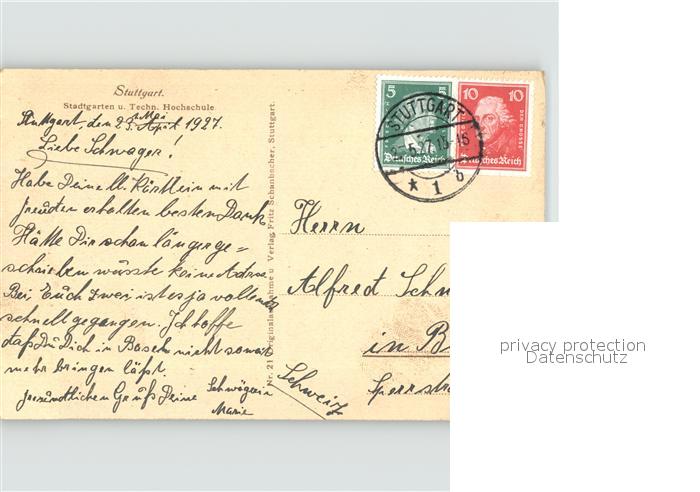 Stuttgart.
Stadtgarten u. Techn. Hochschule
Stuttgart, den 2. Mai 1927.
Liebe Schwager!
Habe Deine lb. Kärtlein mit
Freuden erhalten besten Dank
Hätte Dir schon länger ge=
schrieben wüsste keine Adres
Bei Euch zwei ist es ja vollends
schnell gegangen. Ich hoffe
daß Du Dich in Basel nicht so weit
mehr bringen läßt.
freundlichen Gruß Deine Schwägerin
Marie
Nr. 21 Originalaufnahme u Verlag Fritz Schanbacher, Stuttgart.
5
Deutsches Reich
10 10
DER GROSSE
Deutsches Reich
STUTTGART
5.27.15-16
* 1 b
Herrn
Alfred Schn
in B
Sperrstr
Schweiz
privacy protection
Datenschutz